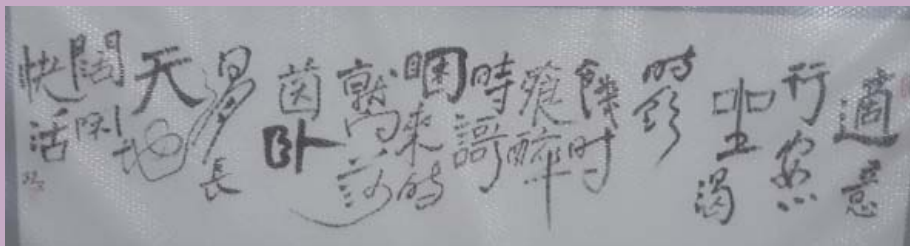 適意
行安心
坐渴
時飲
饑时
餐醉
時謌
睏來時
就向莎
茵卧
日月長
天地
闊閑
快活